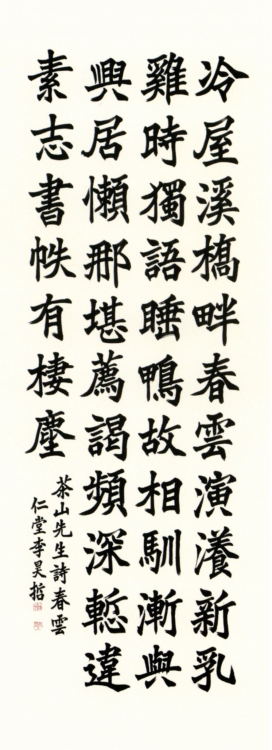 冷屋溪橋畔春雲演瀁新乳
雞時獨語睡鴨故相馴漸與
興居懶那堪薦謁頻深慙違
素志書帙有棲塵
茶山先生詩春雲
仁堂李昊哲